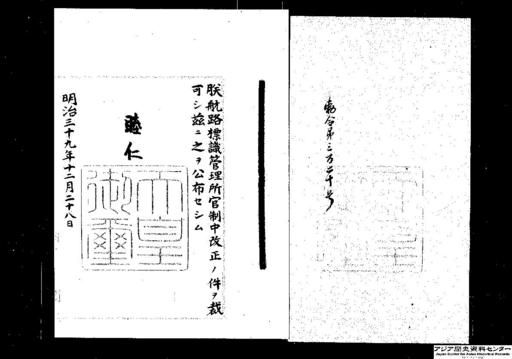 勅令第三百二十号
朕航路標識管理所官制中改正ノ件ヲ裁
可シ茲ニ之ヲ公布セシム
睦仁
天皇
御璽
明治三十九年十二月二十八日
アジア歴史資料センター
Japan Center for Asian Historical Records